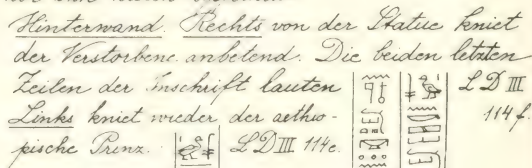 Hinterwand. Rechts von der Statue kniet
der Verstorbene anbetend. Die beiden letzten
Zeilen der Inschrift lauten LD III
Links kniet wieder der aethio- 114 f.
pische Prinz. LD III 114e.